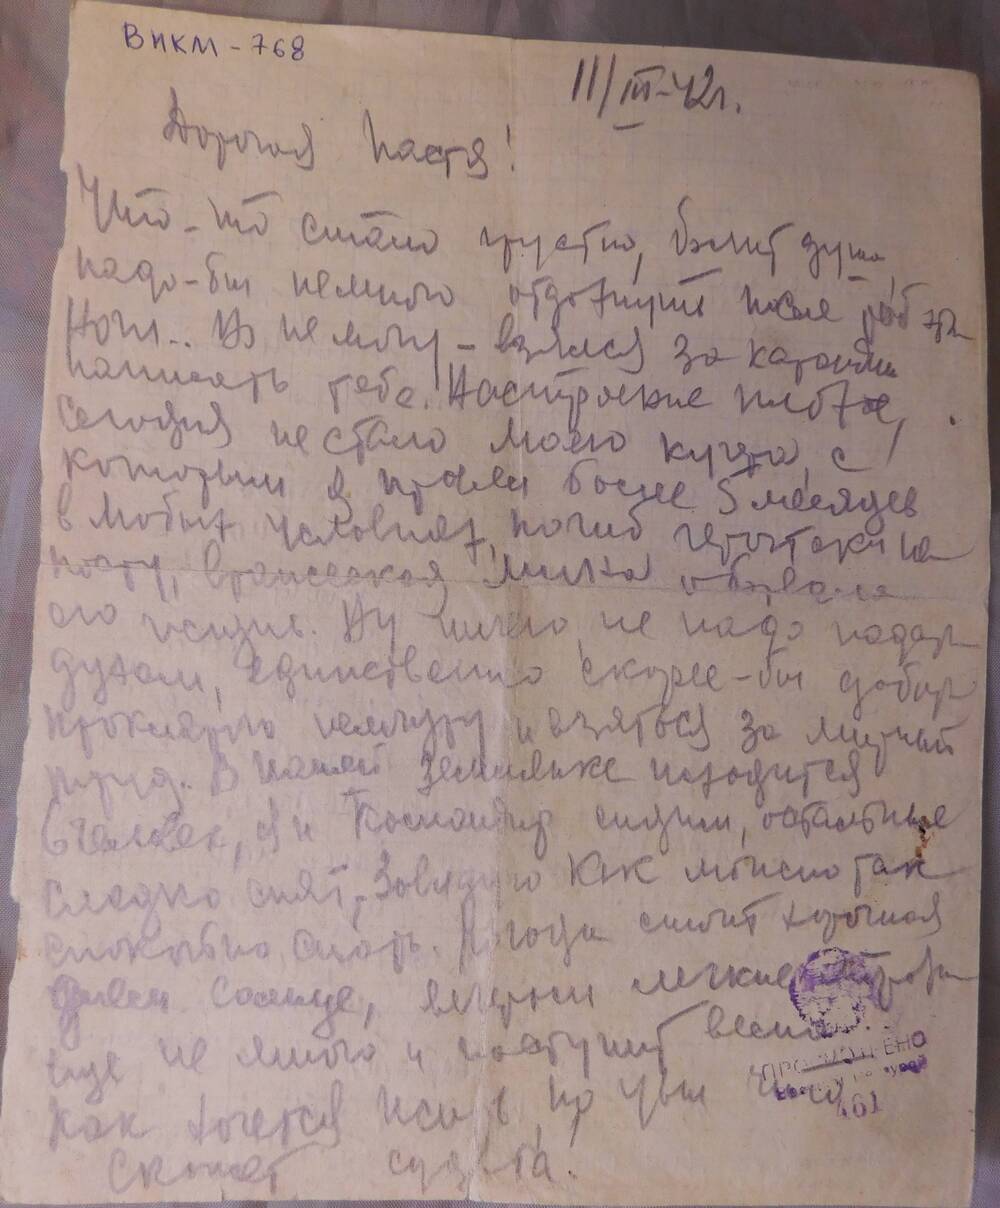 ВИКМ-768
11/III-42г.
Дорогая Настя!
Что-то стало грустно, болит душа,
надо-бы немного отдохнуть после работы
Ночи.. Но не могу - взялся за карандаш
написать тебе. Настроение плохое,
сегодня не стало моего друга, с
которым я провел более 5 месяцев
в любых условиях, погиб герой таки на
посту, вражеская мина оборвала
его жизнь. Ну ничего, не надо падать
духом, единственно скорее-бы добить
проклятую немчуру и взяться за мирный
труд. В нашей землянке находится
6 человек, я и Командир сидим, остальные
сладко спят, Завидую как можно так
спокойно спать. Погода стоит хорошая
днем Солнце, вечером легкие морозы
еще не много и наступит весна.
Как хочется жить, но увы что
скажет судьба!
ПРОСМОТРЕНО
Военной Цензурой
461